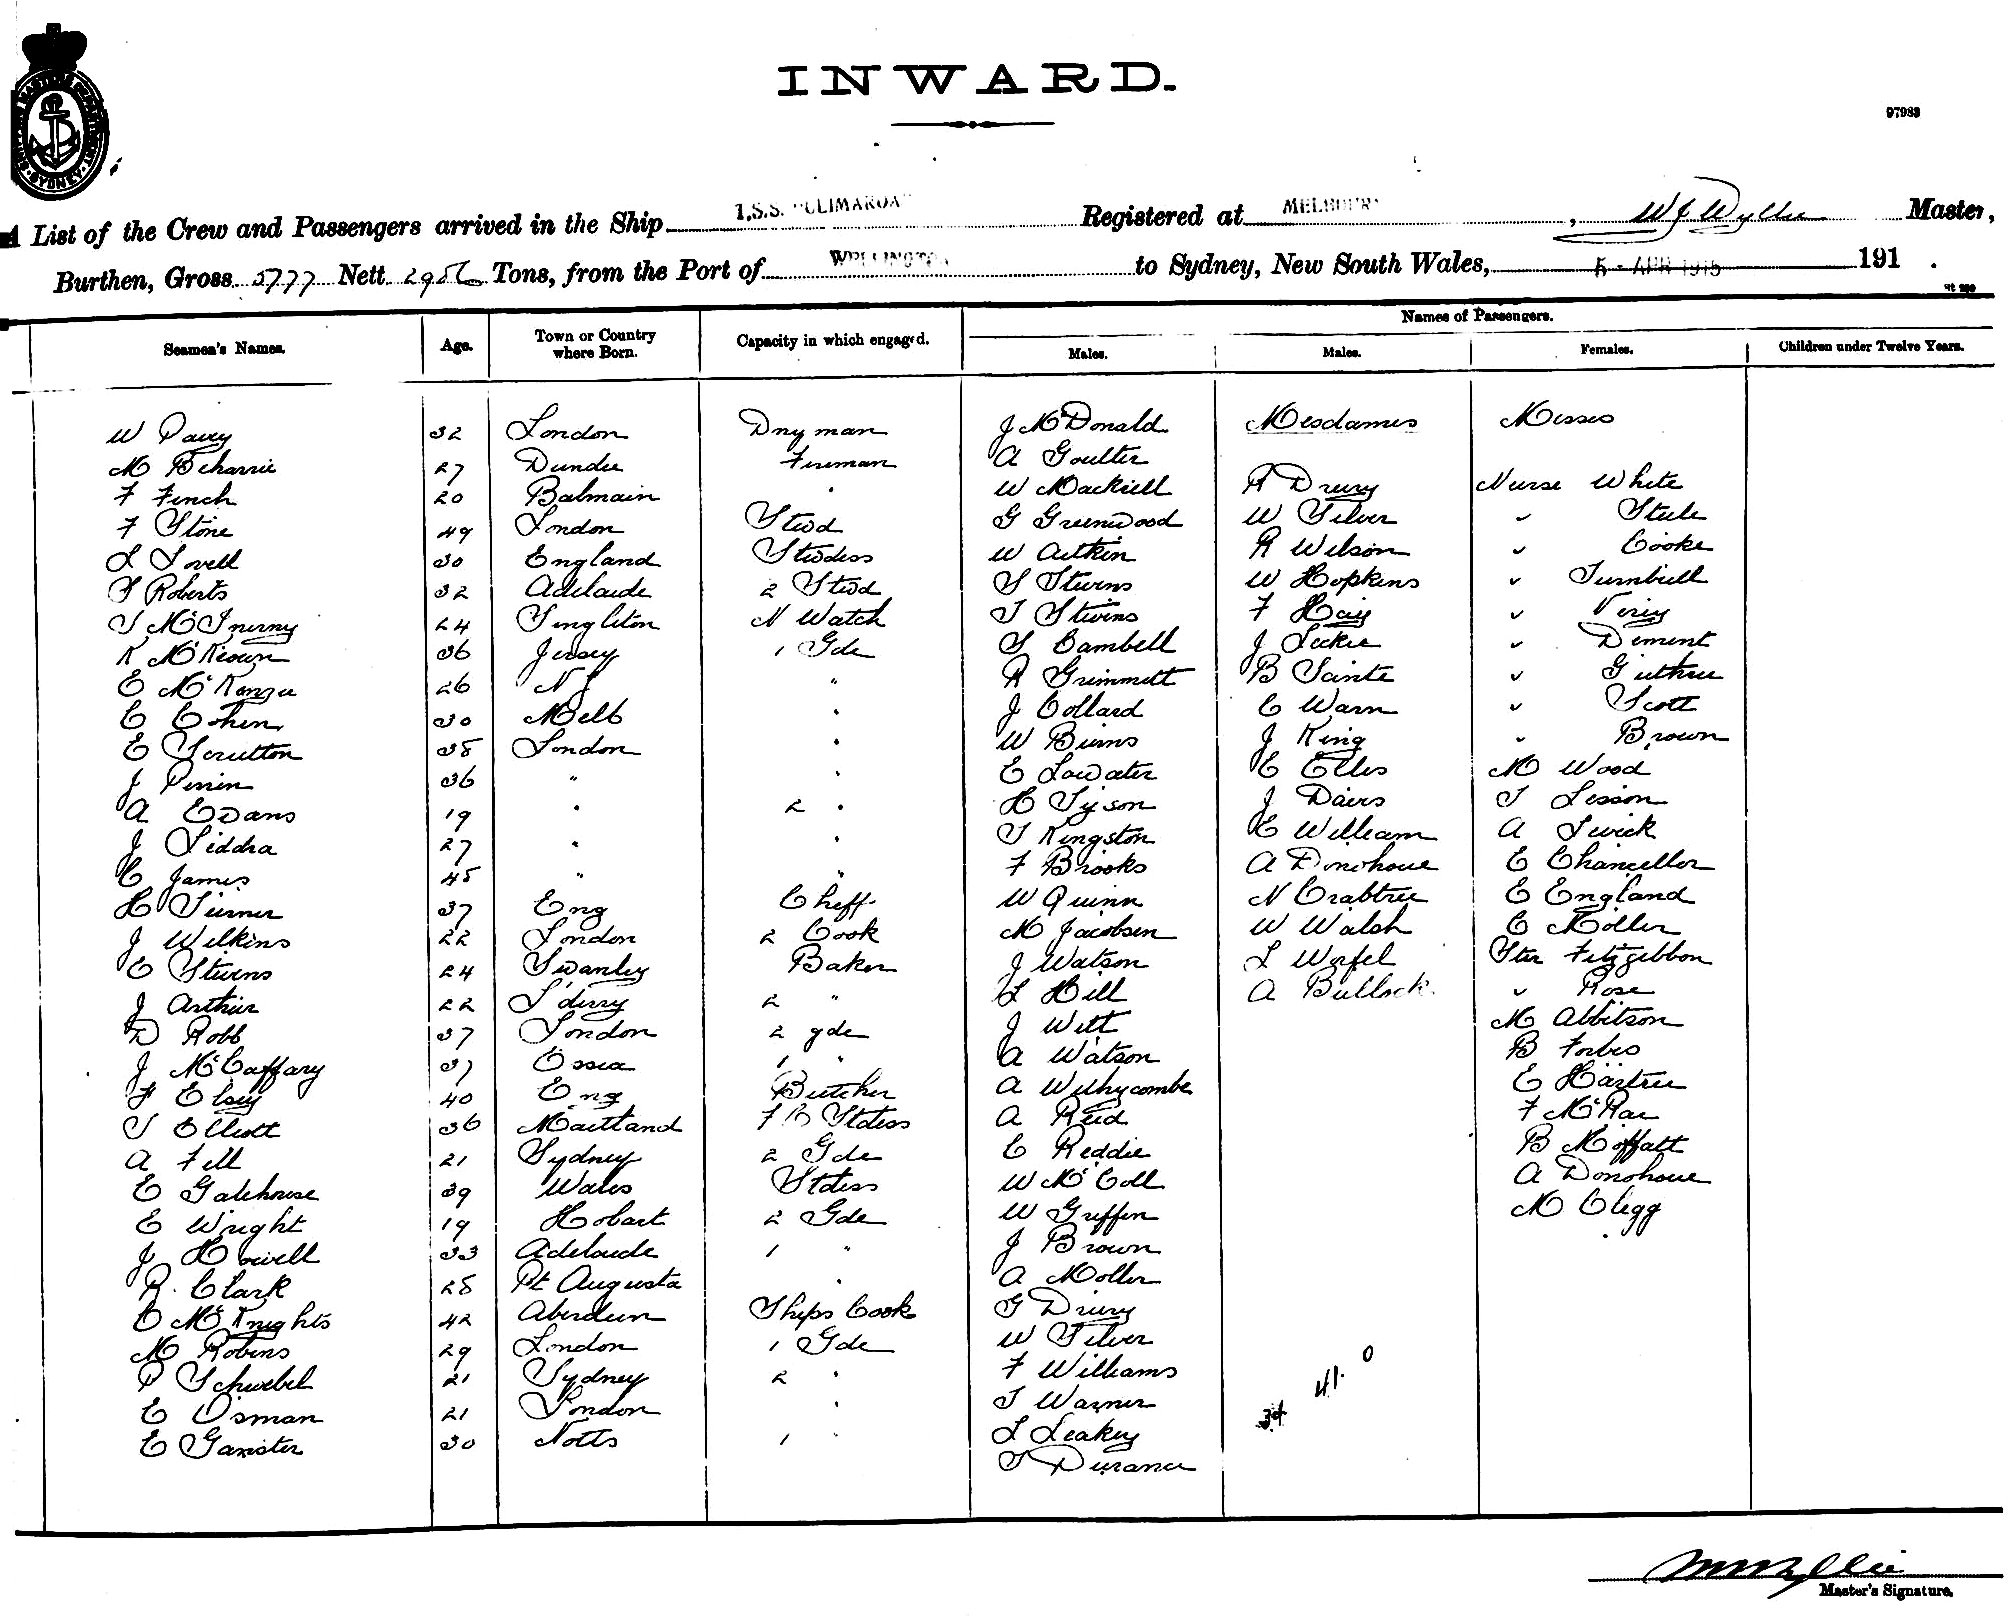 INWARD.
97983
A List of the Crew and Passengers arrived in the Ship T.S.S. "ULIMAROA" Registered at MELBOURN, W J Wyllie Master,
Burthen, Gross 5777 Nett 2956 Tons, from the Port of WELLINGTON to Sydney, New South Wales, 5 - APR 1915 191 .
Names of Passengers.
Seamen's Names. Age. Town or Country where Born. Capacity in which engaged. Males. Males. Females. Children under Twelve Years.
W Pavey 32 London Dnyman J McDonald Mesdames Misses
M Beharrie 27 Dundee Fireman A Goulter
F Finch 20 Balmain " W Mackiell R Drury Nurse White
F Stone 49 London Stwd G Greenwood W Silver " Steele
L Lovell 30 England Stwdess W Aitkin R Wilson " Cooke
S Roberts 32 Adelaide 2 Stwd S Stevens W Hopkins " Turnbull
S McInerny 24 Singleton N Watch T Stevens F Hay "
K McKeown 36 Jersey 1 Gde S Cambell J Leckie " Dement
E McKenzie 26 N Z " R Grimmett B Sainte " Guthrie
C Cohen 30 Melb " J Collard C Warn " Scott
E Scrutton 38 London " W Burns J King " Brown
J Perrin 36 " " E Lowater C Elles M Wood
A Evans 19 " 2 " H Tyson J Davis T Lesson
J Siddra 27 " " T Kingston C William A Lwick
C James 45 " " F Brooks A Donohoue E Chancellor
H Turner 37 Eng Cheff W Quinn N Crabtree E England
J Wilkins 22 London 2 Cook M Jacobsen W Walsh C Moller
E Stevens 24 Swanley Baker J Watson L Werfel Ster Fitzgibbon
J Arthur 22 L'derry 2 " L Hill A Bullock " Rose
D Robb 37 London 2 gde J Witt M Abbitson
J McCaffary 37 Ossia 1 " A Watson B Forbes
F Elsey 40 Eng Butcher A Withycombe E Hartree
S Elliott 36 Maitland F C Stdess A Reid F McRae
A Fell 21 Sydney 2 Gde C Reddie B Moffatt
E Gatehouse 39 Wales Stdess W McColl A Donohoue
E Wright 19 Hobart 2 Gde W Griffin M Clegg
J Howell 33 Adelaide 1 " J Brown
R. Clark 28 Pt Augusta " A Moller
C McKnights 42 Aberdeen Ships Cook G Drury
M Robins 29 London 1 Gde W Silver
P Schwebel 21 Sydney 2 " F Williams 41. 0
E Osman 21 London " T Warner 34
E Ganister 30 Notts 1 " L Leakey
S Durance
Master's Signature.